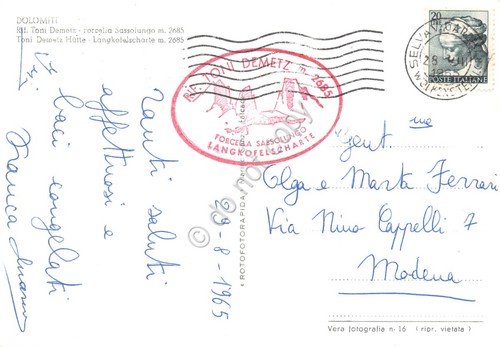 DOLOMITI
Rif. Toni Demetz - Forcella Sassolungo m. 2685
Toni Demetz Hütte - Langkofelscharte m. 2685
Tanti saluti
affettuosi e
baci congelati
Franca
29-8-1965
RIF. TONI DEMETZ m. 2685
FORCELLA SASSOLUNGO
LANGKOFELSCHARTE
SELVA
20
POSTE ITALIANE
Gent. me
Olga e Marta Ferrari
Via Nino Cappelli 7
Modena
Vera fotografia n. 16 (ripr. vietata)